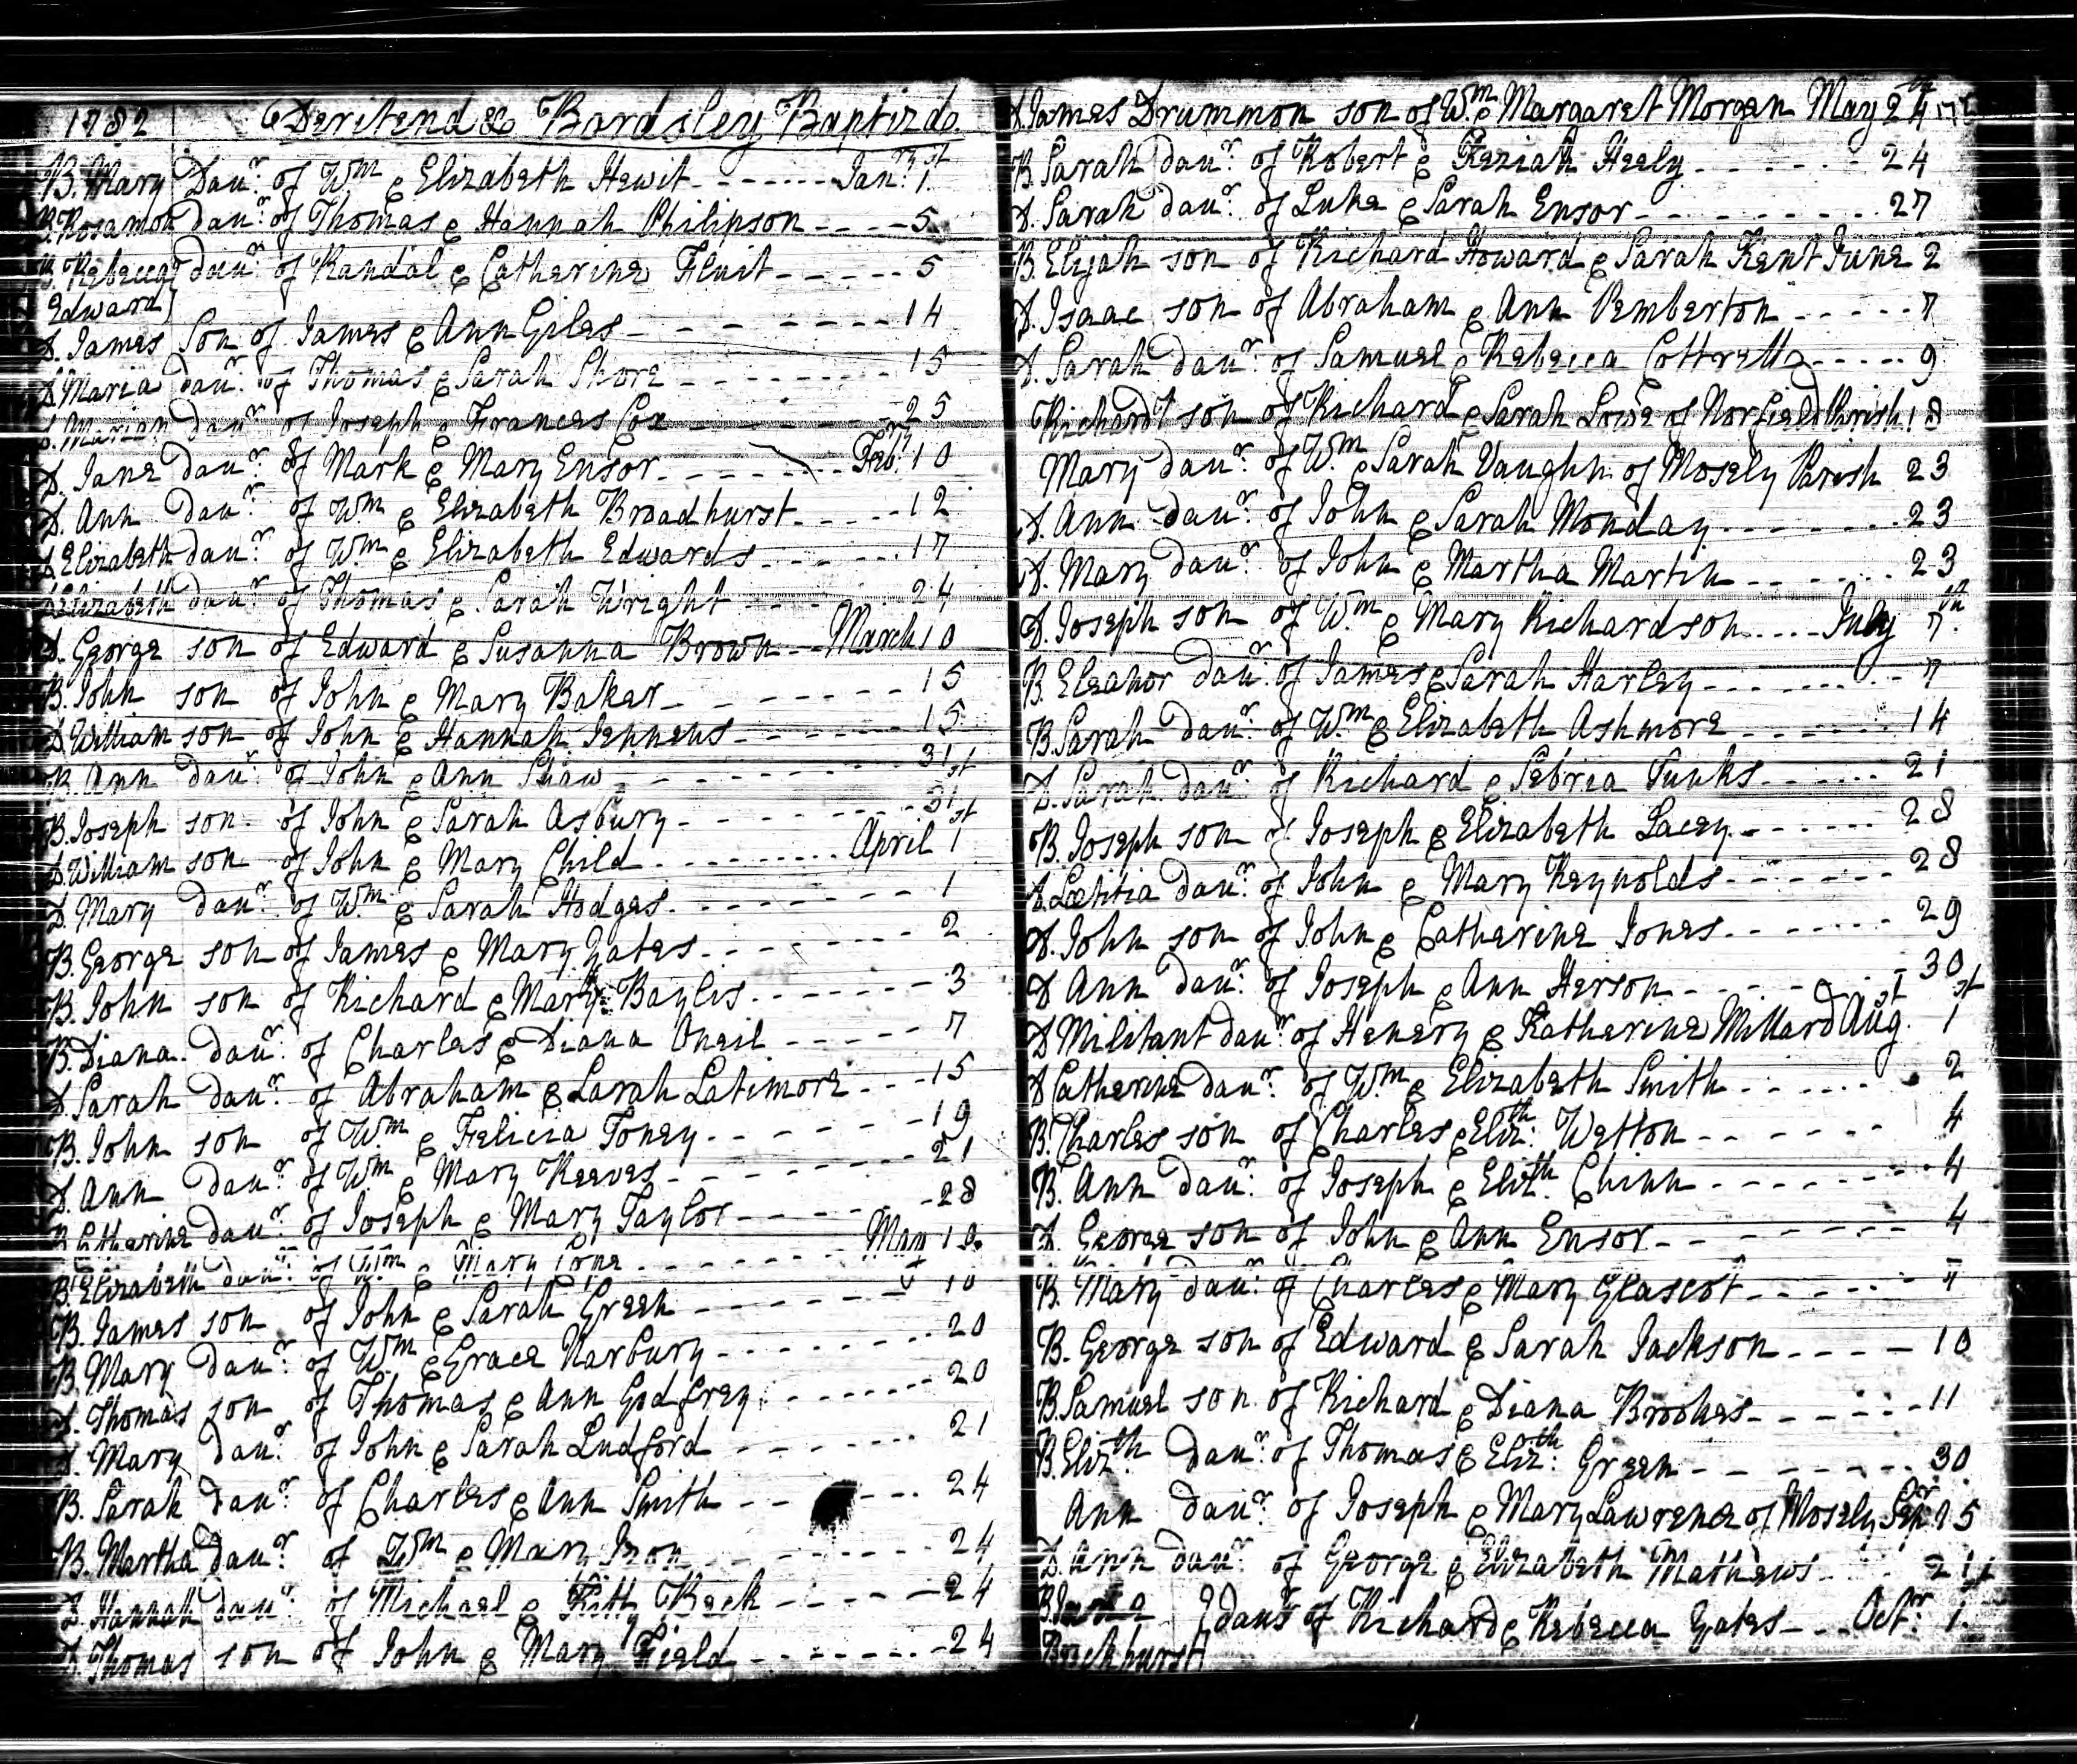 1782 Deritend & Bordsley Baptizd.
B. Mary Daur. of Wm & Elizabeth Hewit - - - Janry. 1st
B. Rosamon daur. of Thomas & Hannah Philipson - - - 5
B. Rebecca daur. of Randal & Catherine Fluit - - - 5
Edward
D. James Son of James & Ann Giles - - - 14
D. Maria daur. of Thomas & Sarah Shore - - - 15
D. Marian daur. of Joseph & Frances Cox - - - 25
D. Jane daur. of Mark & Mary Ensor - - - Feb. 10
D. Ann daur. of Wm & Elizabeth Broadhurst - - - 12
D. Elizabeth daur. of Wm & Elizabeth Edwards - - - 17
D. Elizabeth daur. of Thomas & Sarah Wright - - - 24
D. George son of Edward & Susanna Brown - - March 10
B. John son of John & Mary Baker - - - 15
D. William son of John & Hannah Jennens - - - 15
B. Ann daur. of John & Ann Shaw - - - 31st
B. Joseph son of John & Sarah Asbury - - - 31st
D. William son of John & Mary Child - - - April 1
D. Mary daur. of Wm & Sarah Hodges - - - 1
B. George son of James & Mary Yates - - - 2
B. John son of Richard & Mary Baylis - - - 3
B. Diana daur. of Charles & Diana Oneil - - - 7
D. Sarah daur. of Abraham & Sarah Latimore - - - 15
B. John son of Wm & Felicia Toney - - - 19
D. Ann daur. of Wm & Mary Reeves - - - 21
B. Catharine daur. of Joseph & Mary Taylor - - - 28
B. Elizabeth daur. of Wm & Mary - - - May 10
B. James son of John & Sarah Green - - - 10
B. Mary daur. of Wm & Grace Norbury - - - 20
D. Thomas son of Thomas & Ann Godfrey - - - 20
D. Mary daur. of John & Sarah Ludford - - - 21
B. Sarah daur. of Charles & Ann Smith - - - 24
B. Martha daur. of Wm & Mary Izon - - - 24
D. Hannah daur. of Michael & Kitty Beck - - - 24
D. Thomas son of John & Mary Field - - - 24
D. James Drummon son of Wm & Margaret Morgan May 24th
B. Sarah daur. of Robert & Keziah Heely - - - 24
D. Sarah daur. of Luke & Sarah Ensor - - - 27
B. Elijah son of Richard Howard & Sarah Kent June 2
D. Isaac son of Abraham & Ann Pemberton - - - 7
D. Sarah daur. of Samuel & Rebecca Cottrell - - - 9
Richard son of Richard & Sarah Lowe of Norfield Parish 18
Mary daur. of Wm & Sarah Vaughn of Mosely Parish 23
D. Ann daur. of John & Sarah Monday - - - 23
D. Mary daur. of John & Martha Martin - - - 23
D. Joseph son of Wm & Mary Richardson - - - July 7th
B. Eleanor daur. of James & Sarah Harley - - - 7
B. Sarah daur. of Wm & Elizabeth Ashmore - - - 14
D. Sarah daur. of Richard & Sebria Tunks - - - 21
B. Joseph son of Joseph & Elizabeth Lacey - - - 28
D. Lætitia daur. of John & Mary Reynolds - - - 28
D. John son of John & Catherine Jones - - - 29
D. Ann daur. of Joseph & Ann Herson - - - 30
D. Militant daur. of Henery & Katharine Millard Augst. 1st
D. Catherine daur. of Wm & Elizabeth Smith - - - 2
B. Charles son of Charles & Elizth. Wetton - - - 4
B. Ann daur. of Joseph & Elizth. Chinn - - - 4
D. George son of John & Ann Ensor - - - 4
B. Mary daur. of Charles & Mary Glascot - - - 7
B. George son of Edward & Sarah Jackson - - - 10
B. Samuel son of Richard & Diana Brookes - - - 11
B. Elizth. daur. of Thomas & Elizth. Green - - - 30
Ann daur. of Joseph & Mary Lawrence of Mosely Sepr. 15
D. Ann daur. of George & Elizabeth Mathews - - - 21
B. daurs of Richard & Rebecca Yates - - - Octr. 1st
Brockhurst